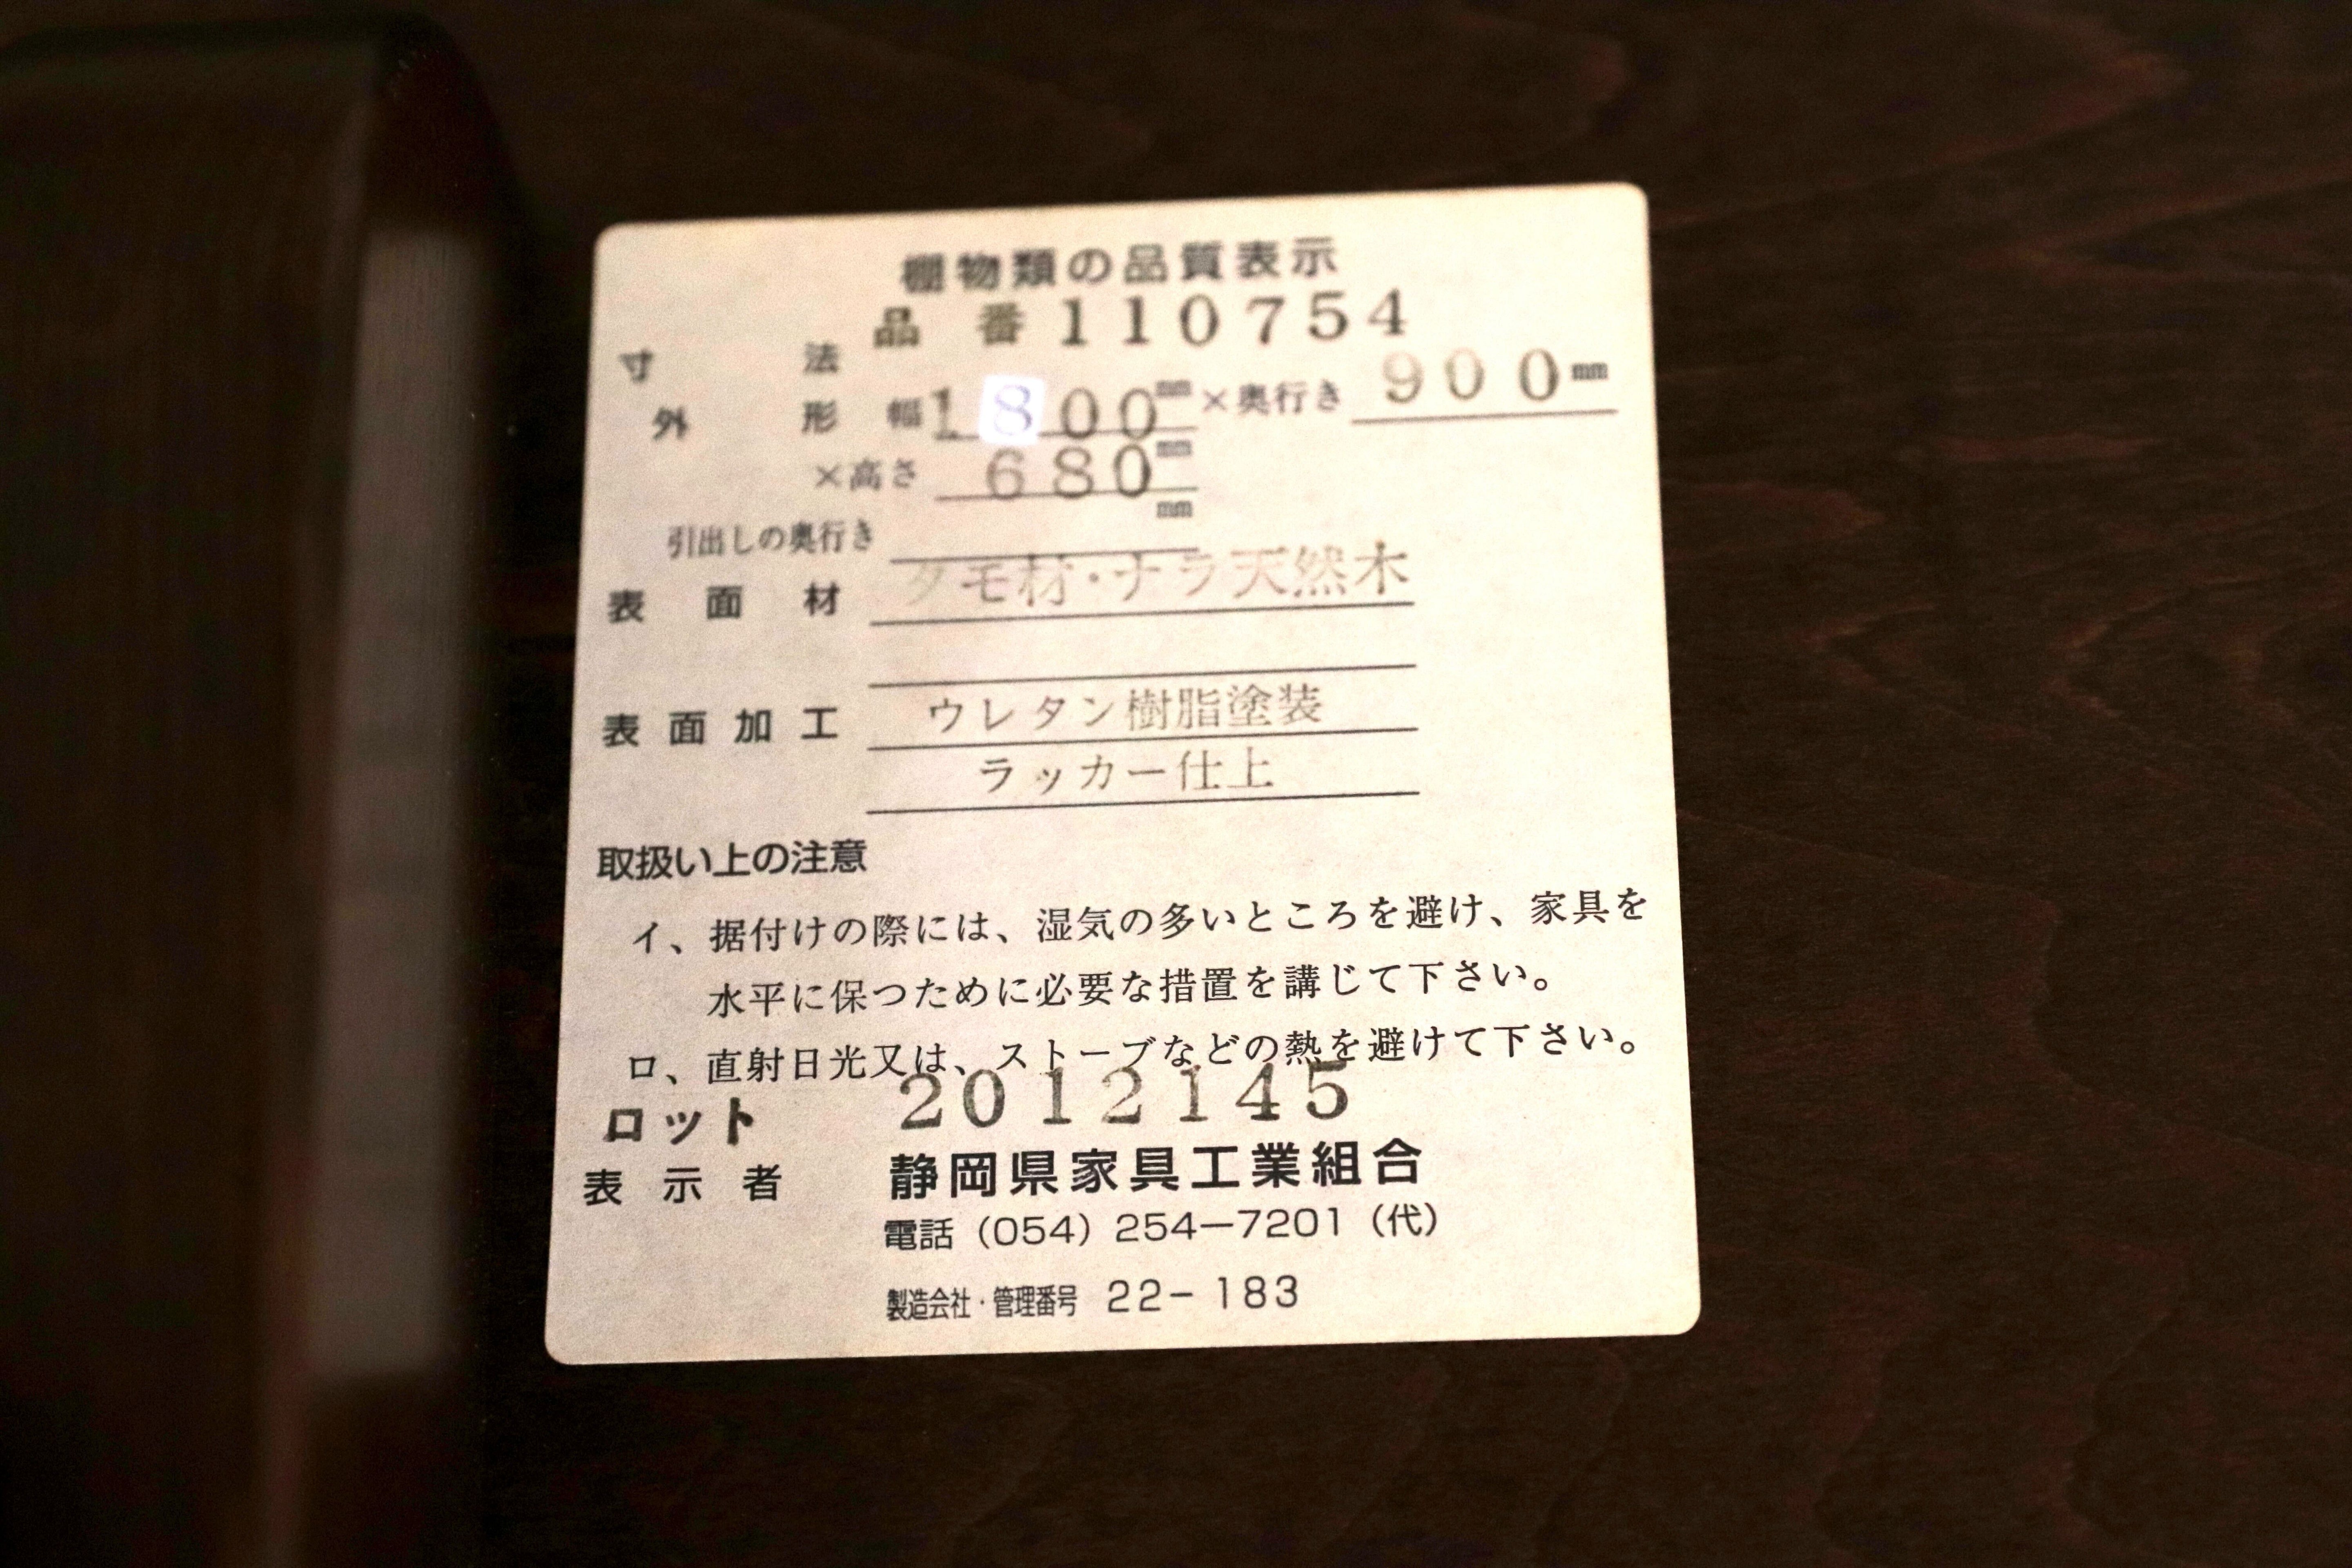 棚物類の品質表示
品番110754
寸法
外形 幅1800mm×奥行き900mm
×高さ680mm
引出しの奥行き mm
表面材 タモ材・ナラ天然木
表面加工 ウレタン樹脂塗装
ラッカー仕上
取扱い上の注意
イ、据付けの際には、湿気の多いところを避け、家具を
水平に保つために必要な措置を講じて下さい。
ロ、直射日光又は、ストーブなどの熱を避けて下さい。
ロット 2012145
表示者 静岡県家具工業組合
電話（054）254−7201（代）
製造会社・管理番号 22−183